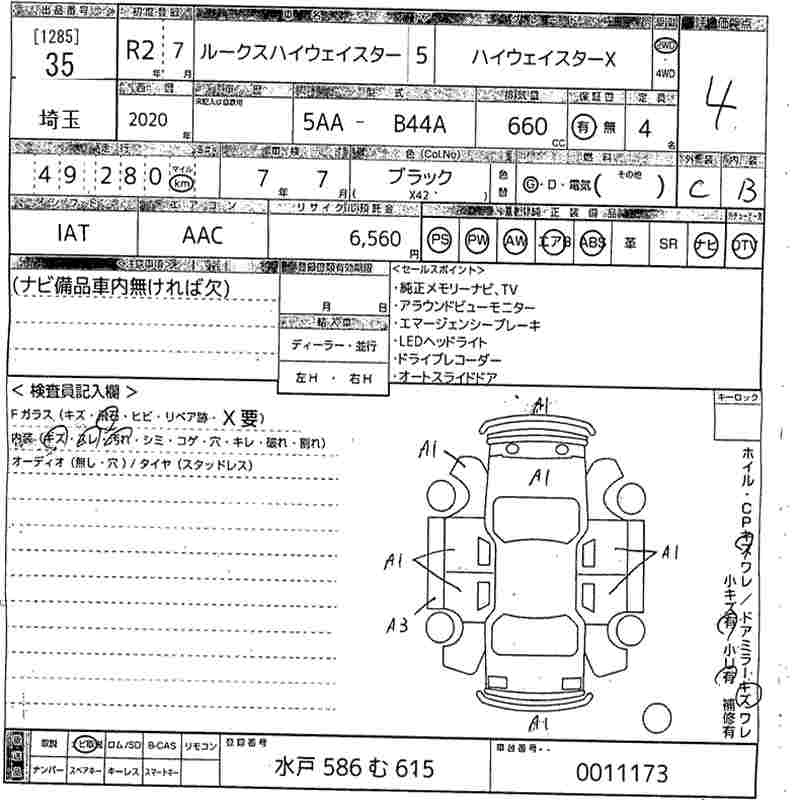 出品番号 初度登録 車名 評価点
[1285] 35 R2年 7月 ルークスハイウェイスター 5 ハイウェイスターX 2WD・4WD 4
埼玉 西暦 車歴 型式 排気量 保証書 定員
2020年 5AA - B44A 660cc 有 無 4名
走行 車検 色(Col.No) 燃料 外装 内装
49280 マイル km 7年 7月 ブラック (X42・) 色替 G・D・電気( その他 ) C B
エアコン リサイクル預託金 純正装備品
IAT AAC 6,560円 PS PW AW エアB ABS 革 SR ナビ TV
(ナビ備品車内無ければ欠)
登録書類有効期限
月 日
輸入車
ディーラー・並行
左H ・ 右H
<セールスポイント>
・純正メモリーナビ、TV
・アラウンドビューモニター
・エマージェンシーブレーキ
・LEDヘッドライト
・ドライブレコーダー
・オートスライドドア
<検査員記入欄>
Fガラス(キズ・飛石・ヒビ・リペア跡・X要)
内装・(キズ・スレ・汚れ・シミ・コゲ・穴・キレ・破れ・割れ)
オーディオ(無し・穴)/タイヤ(スタッドレス)
キーロック
A1
A1
A1
A1
A1
A3
A1
ホイル・CPキズワレ/ドアミラーキズワレ
小キズ有/小U有 補修有
取説 ナビ取説 ロム/SD B-CAS リモコン 登録番号 車台番号
ナンバー スペアキー キーレス スマートキー 水戸 586 む 615 0011173